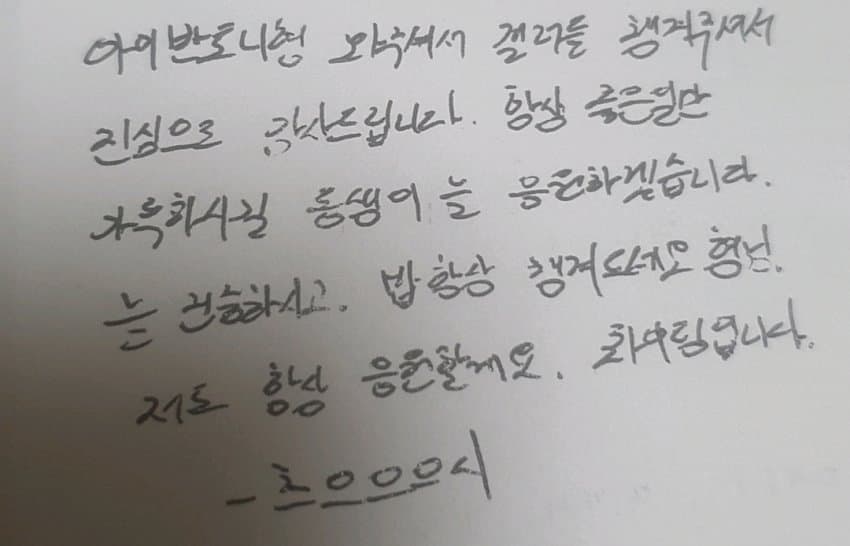 아이반토니형 와주셔서 컬러를 챙겨주셔서
진심으로 감사드립니다. 항상 좋은일만
가득하시길 동생이 늘 응원하겠습니다.
늘 건승하시고. 밥 항상 챙겨드세요 형님.
저도 항상 응원할게요. 화이팅입니다.
- 츠으으으시